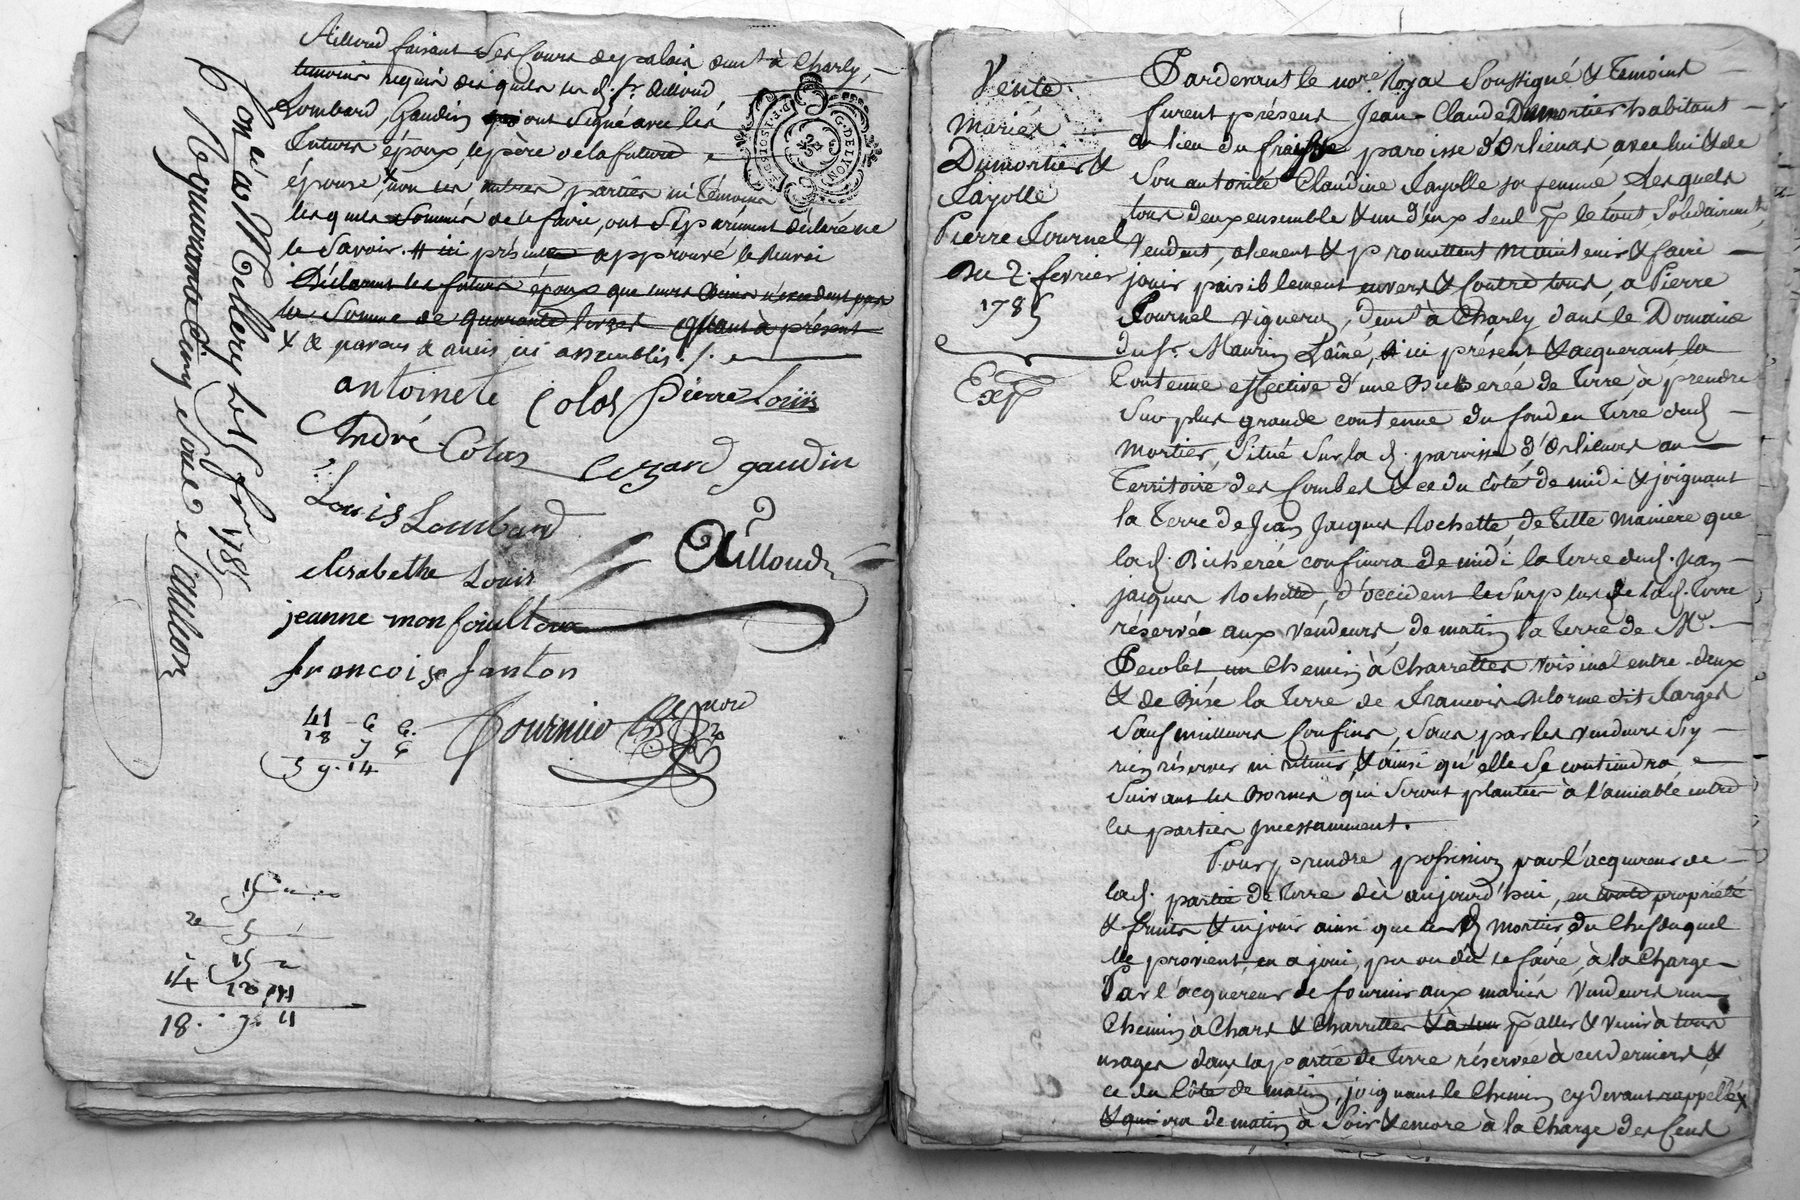 Ailloud faisant ses cours de palais dem.t à Charly,
temoins requis desquels led. s.r Ailloud
Lombard, Gaudin ont signé avec les
futurs époux, le père de la future
épouse, non les autres parties ni témoins
lesquels sommés de le faire, ont séparément déclaré ne
le savoir. # ici présente approuvé le renvoi
Déclarent les futurs époux que leurs biens n'excedent pas
la somme de quarante livres quant à présent
& & parens & amis ici assemblés ./.
antoinete Colas Pierre Louis
André Colas
Cezard gaudin
Louis Lombard
Ailloud
elisabethe Louis
jeanne monfoiulloux
francoise fanton
Fournier
41 6 6.
18 j 6
5 9. 14
Con. à Millery le 5 fev. 1785
R. quarante cinq sous
15
14
18. 11
G. DE LYON
Vente
Mariés
Dumortier &
Fayolle
à
Pierre Journel
Du 2. fevrier
1785
Exp
Pardevant le no.re Royal soussigné & temoins
furent présens Jean-Claude Dumortier habitant
au lieu du fraisse paroisse d'Orlienas, avec lui & de
son autorité Claudine Fayolle sa femme, lesquels
tous deux ensemble & un d'eux seul p. le tout solidairem.t,
vendent, alienent & promettent maintenir & faire
jouir paisiblement envers & contre tous, a Pierre
Journel vigneron, dem.t à Charly dans le Domaine
du s.r Maurin L'aîné, ici présent & acquerant la
contenue effective d'une Bicherée de terre à prendre
sur plus grande contenue du fond en terre dud.
Mortier, situé sur la d. paroisse d'Orlienas au
Territoire des Combes & ce du côté de midi & joignant
la terre de Jean Jacques Rochette, de telle maniere que
lad. Bicherée confinera de midi la terre dud. Jean
jacques Rochette, d'occident le surplus de lad. terre
réservée aux vendeurs, de matin la terre de M.r
Pecolet, un chemin à charrettes voisinal entre-deux
& de Bise la terre de francois Delorme dit Farges
sauf meilleurs confins, sans par les vendeurs s'y
rien réserver ni retenir, & ainsi qu'elle se contiendra
suivant les Bornes qui seront plantées à l'amiable entre
les parties incessamment.
Pour y prendre possession par l'acquereur de
lad. partie de terre dès aujourd'hui, en toute propriété
& fruits & en jouir ainsi que led. mortier du chef duquel
elle provient, en a joui, pu ou dû le faire, à la charge
Par l'acquereur de fournir aux mariés vendeurs un
chemin à chars & charrettes p. aller & venir à tous
usages dans la partie de terre réservée à ces derniers, &
ce du côté de matin, joignant le chemin cy devant rappellé
& qui ira de matin à soir & encore à la charge des cens